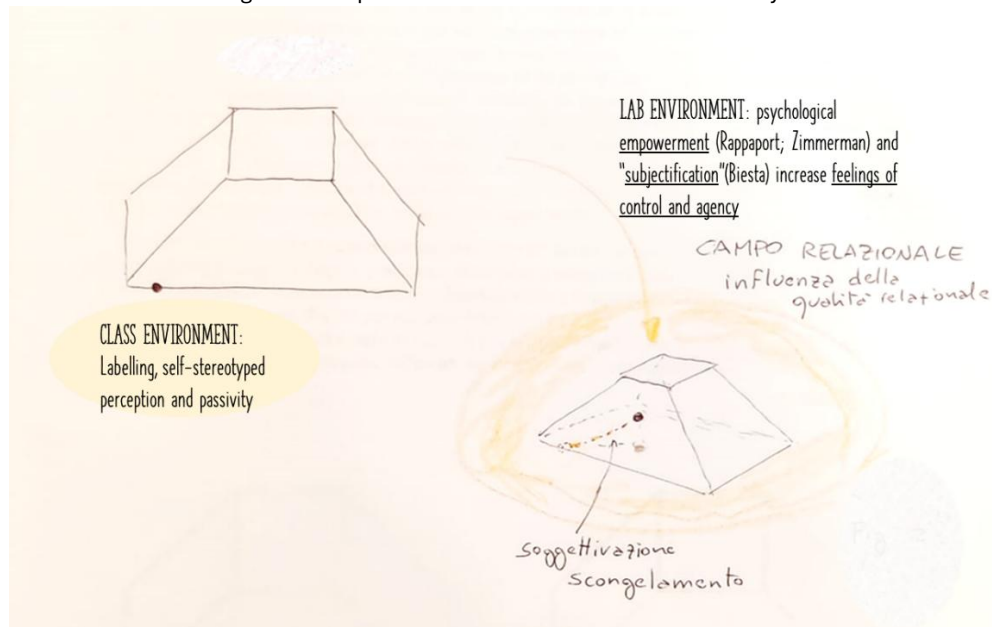 LAB ENVIRONMENT: psychological
empowerment (Rappaport; Zimmerman) and
"subjectification"(Biesta) increase feelings of
control and agency
CAMPO RELAZIONALE
influenza della
qualità relazionale
CLASS ENVIRONMENT:
Labelling, self-stereotyped
perception and passivity
soggettivazione
scongelamento